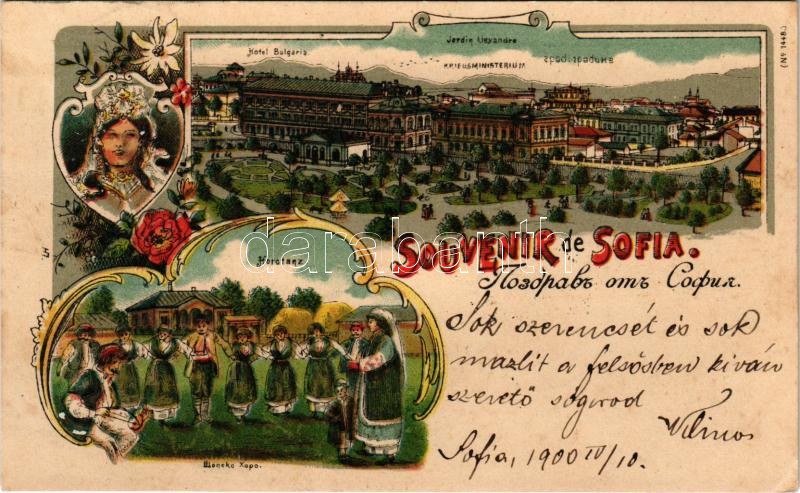 (No 1448.)
Jardin Alexandre
Hotel Bulgaria
KRIEGSMINISTERIUM
SOUVENIR de SOFIA.
Поздравъ отъ София.
darabanth
Horotanz
Шопско Хоро.
Sok szerencsét és sok
mazlit a felsősben kiván
szerető sógorod
Vilmos
Sofia, 1900 IV/10.